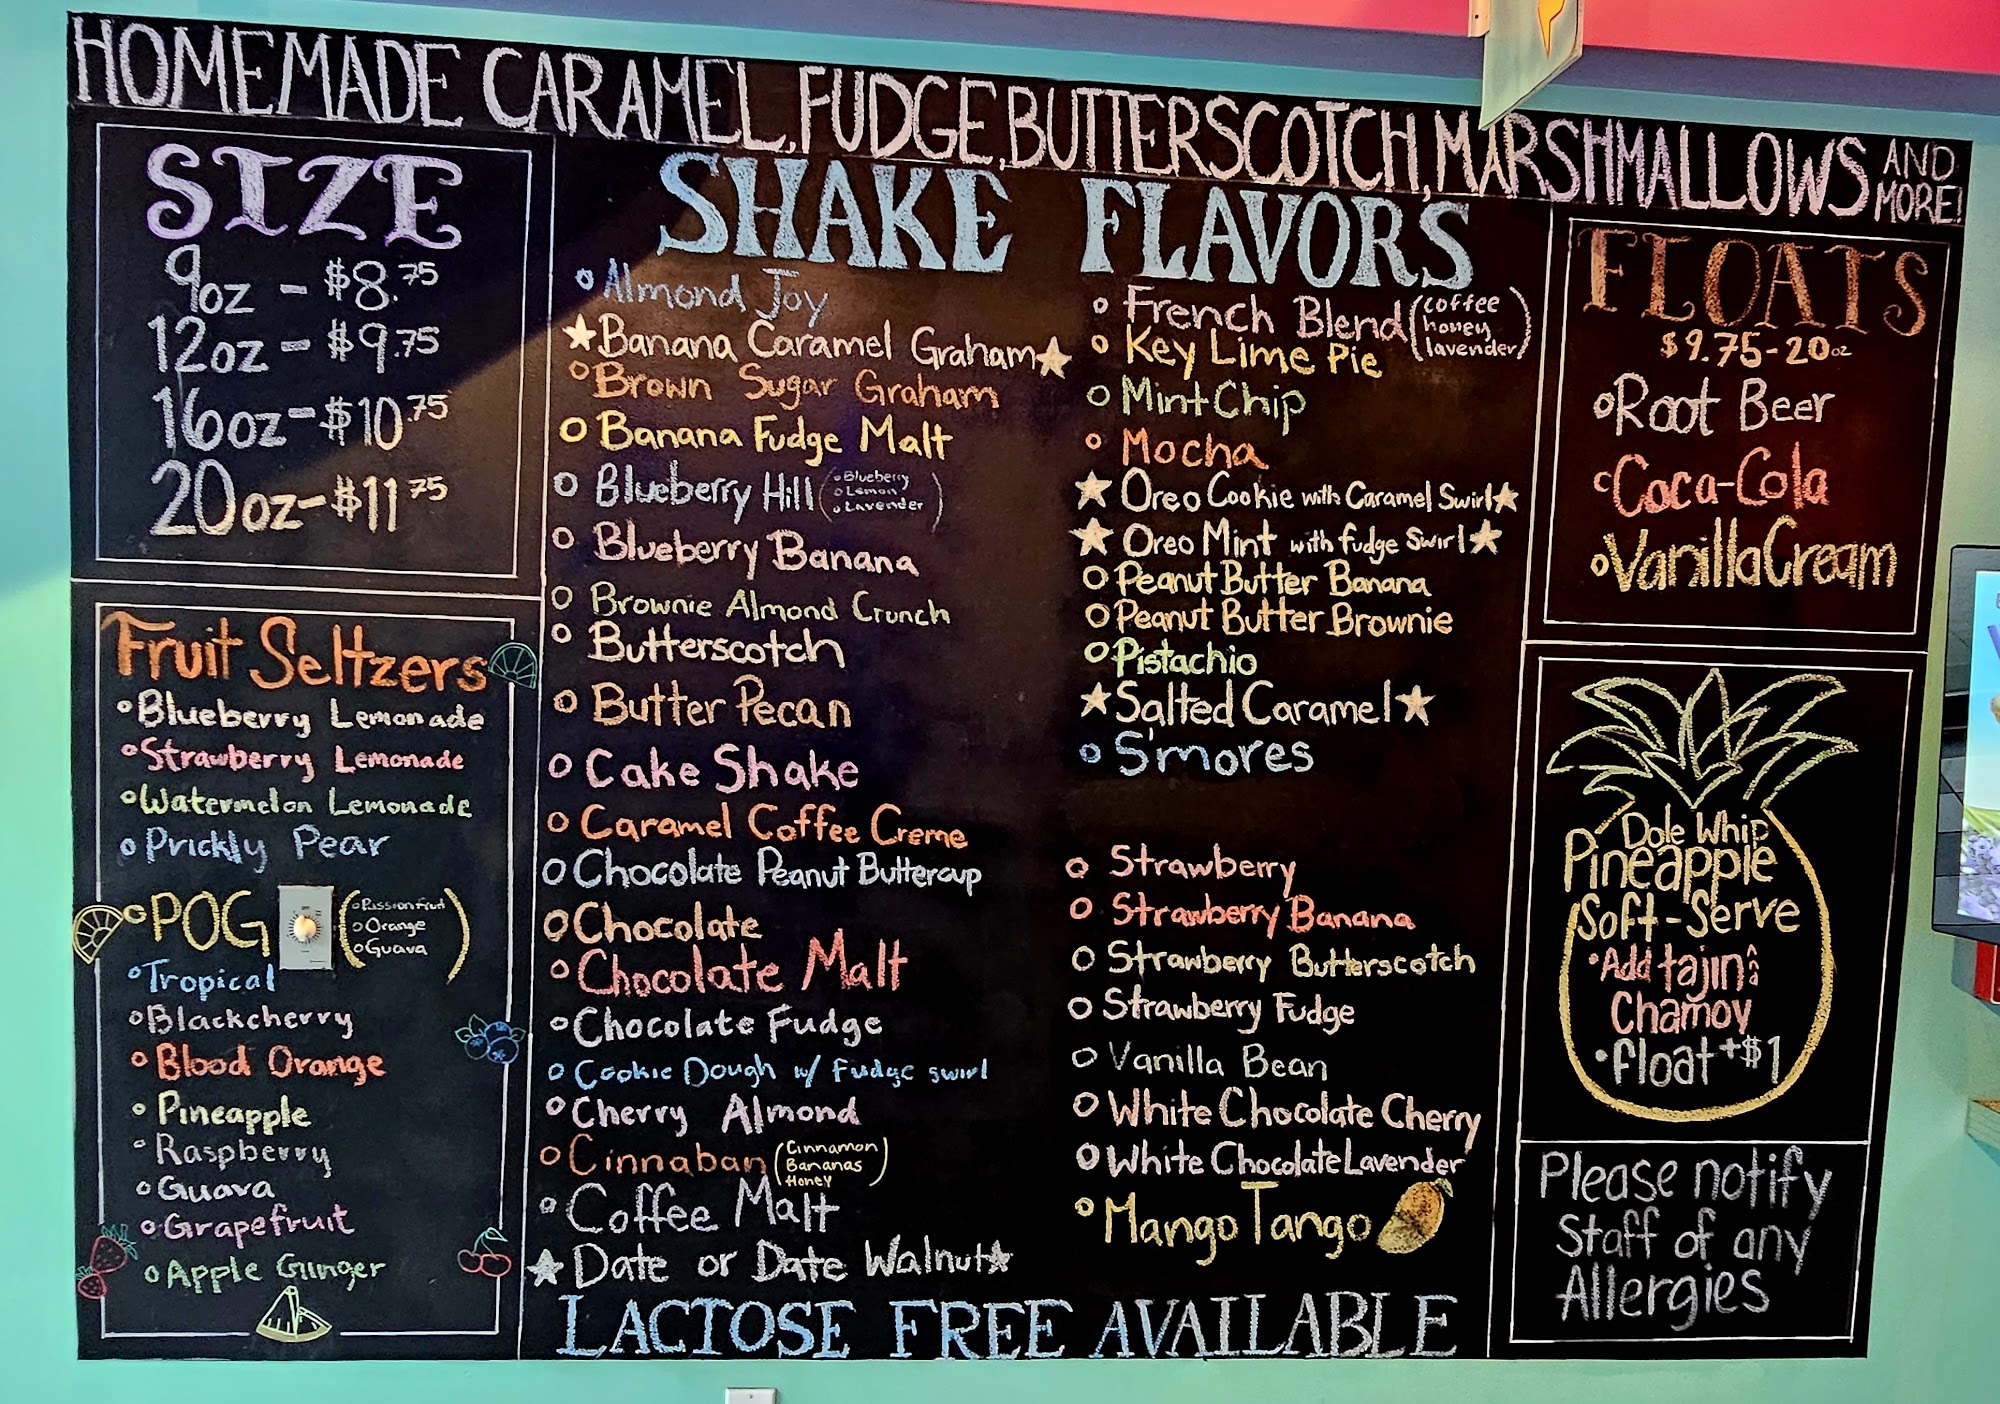 HOMEMADE CARAMEL, FUDGE, BUTTERSCOTCH, MARSHMALLOWS AND MORE!
SIZE
9oz - $8.75
12oz - $9.75
16oz - $10.75
20oz - $11.75
Fruit Seltzers
Blueberry Lemonade
Strawberry Lemonade
Watermelon Lemonade
Prickly Pear
POG (Passionfruit
Orange
Guava)
Tropical
Blackcherry
Blood Orange
Pineapple
Raspberry
Guava
Grapefruit
Apple Ginger
SHAKE FLAVORS
Almond Joy
Banana Caramel Graham
Brown Sugar Graham
Banana Fudge Malt
Blueberry Hill (Blueberry
Lemon
Lavender)
Blueberry Banana
Brownie Almond Crunch
Butterscotch
Butter Pecan
Cake Shake
Caramel Coffee Creme
Chocolate Peanut Buttercup
Chocolate
Chocolate Malt
Chocolate Fudge
Cookie Dough w/ Fudge swirl
Cherry Almond
Cinnaban (Cinnamon
Bananas
Honey)
Coffee Malt
Date or Date Walnut
French Blend (coffee
honey
lavender)
Key Lime Pie
Mint Chip
Mocha
Oreo Cookie with Caramel Swirl
Oreo Mint with fudge Swirl
Peanut Butter Banana
Peanut Butter Brownie
Pistachio
Salted Caramel
S'mores
Strawberry
Strawberry Banana
Strawberry Butterscotch
Strawberry Fudge
Vanilla Bean
White Chocolate Cherry
White Chocolate Lavender
Mango Tango
LACTOSE FREE AVAILABLE
FLOATS
$9.75-20oz
Root Beer
Coca-Cola
Vanilla Cream
Dole Whip
Pineapple
Soft-Serve
Add tajin
Chamoy
float +$1
Please notify
Staff of any
Allergies